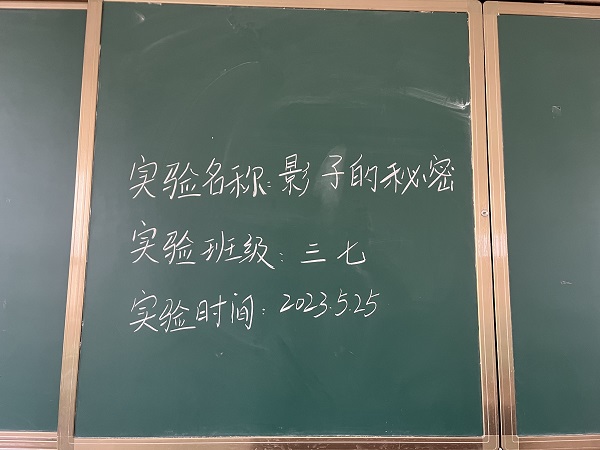 实验名称:影子的秘密
实验班级:三七
实验时间:2023.5.25